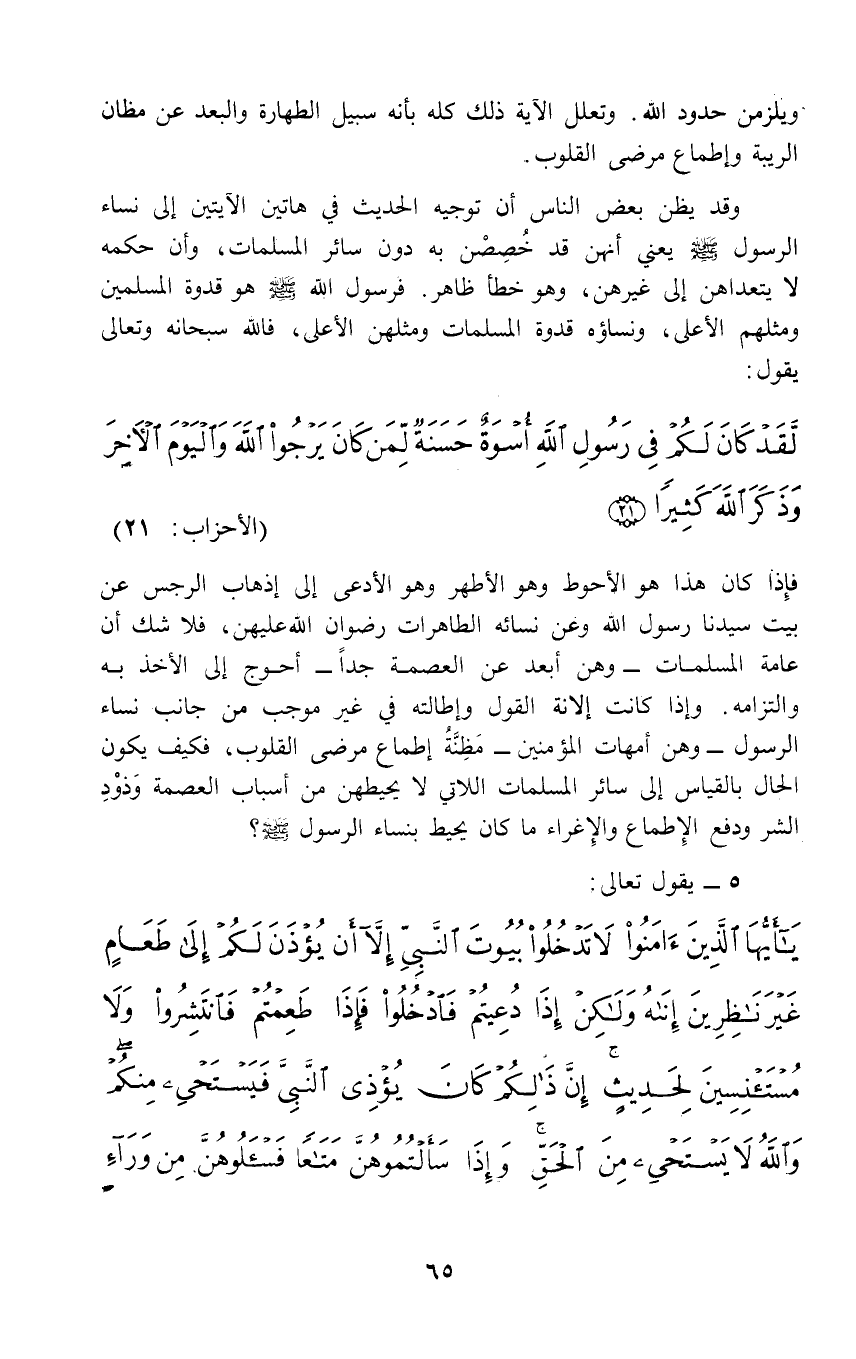 ويلزمن حدود الله. وتعلل الآية ذلك كله بأنه سبيل الطهارة والبعد عن مظان
الريبة وإطماع مرضى القلوب.
وقد يظن بعض الناس أن توجيه الحديث في هاتين الآيتين إلى نساء
الرسول ﷺ يعني أنهن قد خُصِصْن به دون سائر المسلمات، وأن حكمه
لا يتعداهن إلى غيرهن، وهو خطأ ظاهر. فرسول الله ﷺ هو قدوة المسلمين
ومثلهم الأعلى، ونساؤه قدوة المسلمات ومثلهن الأعلى، فالله سبحانه وتعالى
يقول:
لَّقَدْ كَانَ لَكُمْ فِي رَسُولِ ٱللَّهِ أُسْوَةٌ حَسَنَةٌ لِّمَن كَانَ يَرْجُوا۟ ٱللَّهَ وَٱلْيَوْمَ ٱلْآخِرَ
وَذَكَرَ ٱللَّهَ كَثِيرًا ﴿٢١﴾
(الأحزاب: ٢١)
فإِذا كان هذا هو الأحوط وهو الأطهر وهو الأدعى إلى إذهاب الرجس عن
بيت سيدنا رسول الله وعن نسائه الطاهرات رضوان الله عليهن، فلا شك أن
عامة المسلمات ــ وهن أبعد عن العصمة جداً ــ أحوج إلى الأخذ به
والتزامه. وإذا كانت إلانة القول وإطالته في غير موجب من جانب نساء
الرسول ــ وهن أمهات المؤمنين ــ مَظِنَّةُ إطماع مرضى القلوب، فكيف يكون
الحال بالقياس إلى سائر المسلمات اللاتي لا يحيطهن من أسباب العصمة وَذوْدِ
الشر ودفع الإِطماع والإِغراء ما كان يحيط بنساء الرسول ﷺ؟
٥ ــ يقول تعالى:
يَٰٓأَيُّهَا ٱلَّذِينَ ءَامَنُوا۟ لَا تَدْخُلُوا۟ بُيُوتَ ٱلنَّبِيِّ إِلَّآ أَن يُؤْذَنَ لَكُمْ إِلَىٰ طَعَامٍ
غَيْرَ نَٰظِرِينَ إِنَىٰهُ وَلَٰكِنْ إِذَا دُعِيتُمْ فَٱدْخُلُوا۟ فَإِذَا طَعِمْتُمْ فَٱنتَشِرُوا۟ وَلَا
مُسْتَـْٔنِسِينَ لِحَدِيثٍ ۚ إِنَّ ذَٰلِكُمْ كَانَ يُؤْذِى ٱلنَّبِيَّ فَيَسْتَحْيِۦ مِنكُمْ ۖ
وَٱللَّهُ لَا يَسْتَحْيِۦ مِنَ ٱلْحَقِّ ۚ وَإِذَا سَأَلْتُمُوهُنَّ مَتَٰعًا فَسْـَٔلُوهُنَّ مِن وَرَآءِ
٦٥